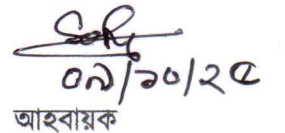 ০৯/১০/২৫
আহবায়ক